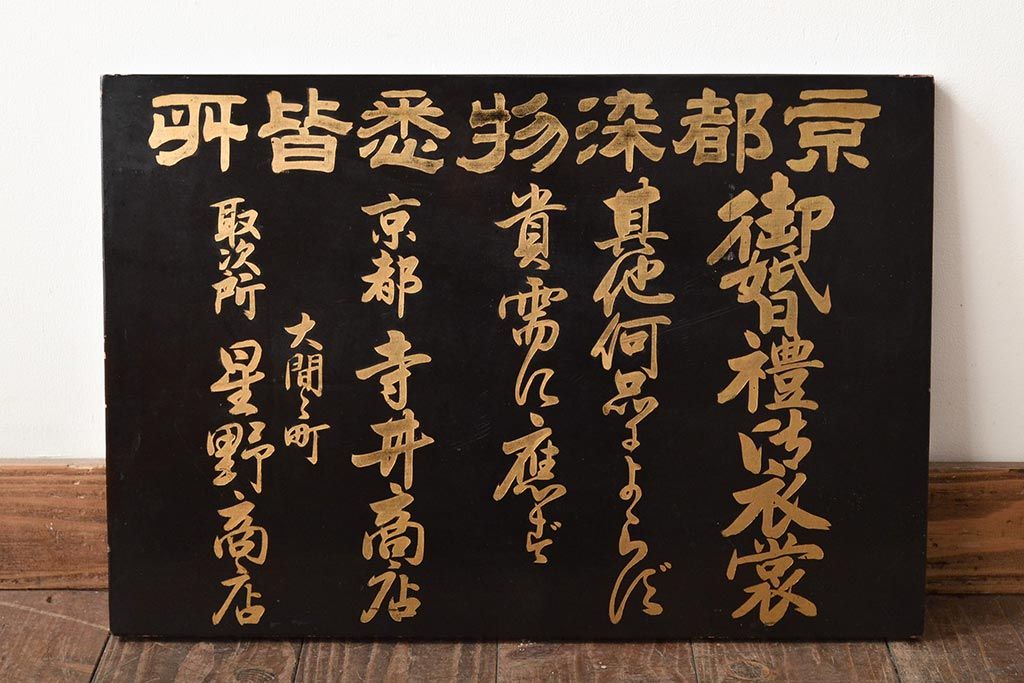 京都染物悉皆所
御婚禮御衣裳
其他何品によらず
貴需に應ず
京都 寺井商店
大間々町
取次所 星野商店